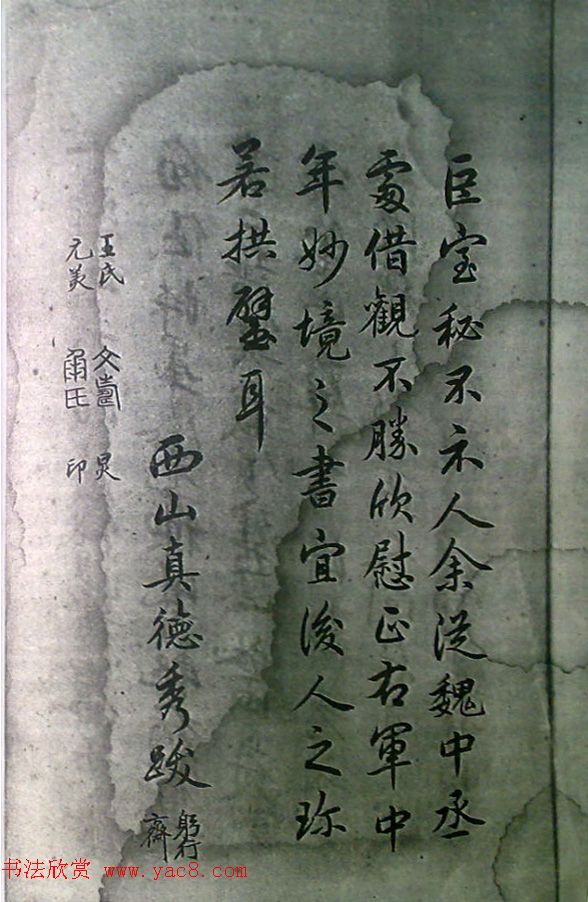 臣室秘不示人余從魏中丞
處借觀不勝欣慰正右軍中
年妙境之書宜後人之珎
若拱璧耳
西山真德秀跋
躬行
齋
王氏
元美
印
书法欣赏 www.yac8.com